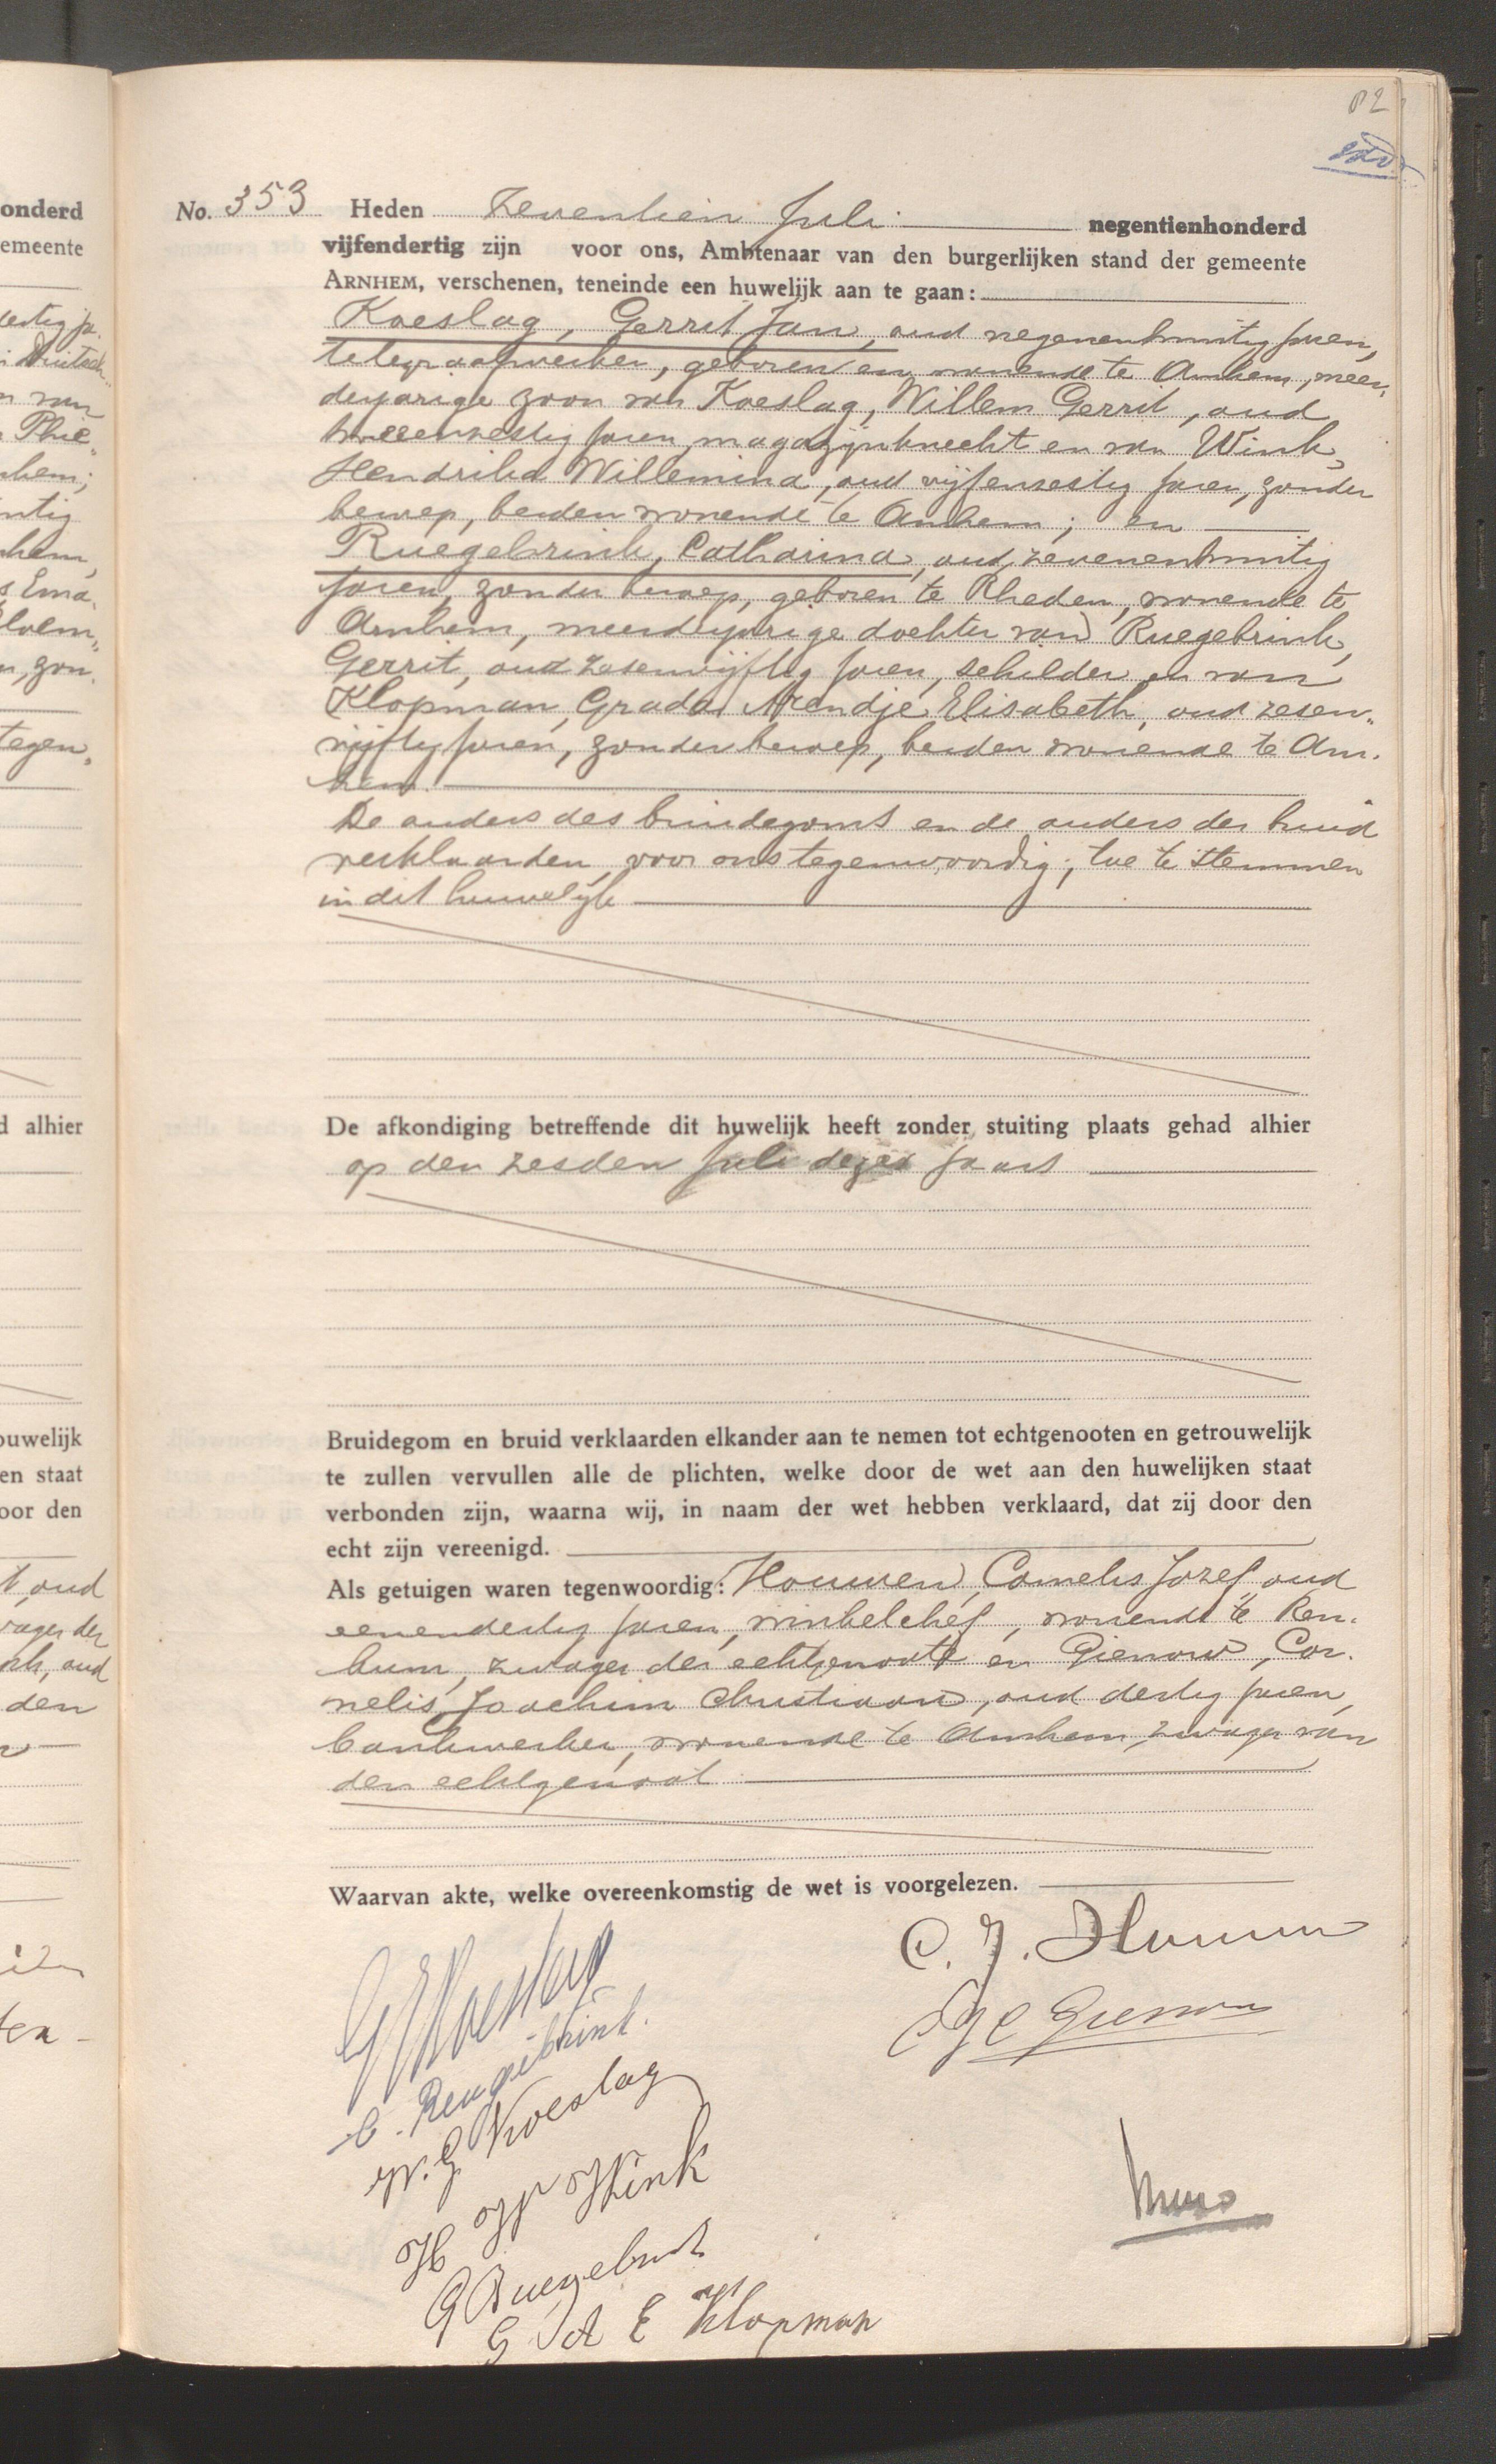 82
No. 353 Heden zeventien Juli negentienhonderd
vijfendertig zijn voor ons, Ambtenaar van den burgerlijken stand der gemeente
ARNHEM, verschenen, teneinde een huwelijk aan te gaan:
Koeslag, Gerrit Jan, oud negenentwintig jaren,
telegraafwerker, geboren en wonende te Arnhem, meer-
derjarige zoon van Koeslag, Willem Gerrit, oud
tweeenzestig jaren, magazijnknecht en van Wink,
Hendrika Willemina, oud vijfenzestig jaren, zonder
beroep, beiden wonende te Arnhem; en
Ruegebrink, Catharina, oud zevenentwintig
jaren, zonder beroep, geboren te Rheden, wonende te
Arnhem, meerderjarige dochter van Ruegebrink,
Gerrit, oud zesenvijftig jaren, schilder en van
Klopman, Grada Arendje Elisabeth, oud zesen-
vijftig jaren, zonder beroep, beiden wonende te Arn-
hem.
De ouders des bruidegoms en de ouders der bruid
verklaarden, voor ons tegenwoordig, toe te stemmen
in dit huwelijk
De afkondiging betreffende dit huwelijk heeft zonder stuiting plaats gehad alhier
op den zesden Juli dezes jaars
Bruidegom en bruid verklaarden elkander aan te nemen tot echtgenooten en getrouwelijk
te zullen vervullen alle de plichten, welke door de wet aan den huwelijken staat
verbonden zijn, waarna wij, in naam der wet hebben verklaard, dat zij door den
echt zijn vereenigd.
Als getuigen waren tegenwoordig: Houwen, Cornelis Jozef, oud
eenendertig jaren, winkelchef, wonende te Ren-
kum, zwager der echtgenoote en Gienow, Cor-
nelis Joachim Christiaan, oud dertig jaren,
bankwerker, wonende te Arnhem, zwager van
den echtgenoot
Waarvan akte, welke overeenkomstig de wet is voorgelezen.
C. J. Houwen
GJKoeslag
CJC Gienow
C. Reugebrink.
W. G Koeslag
H W Wink
G Ruegebrink
G A E Klopman